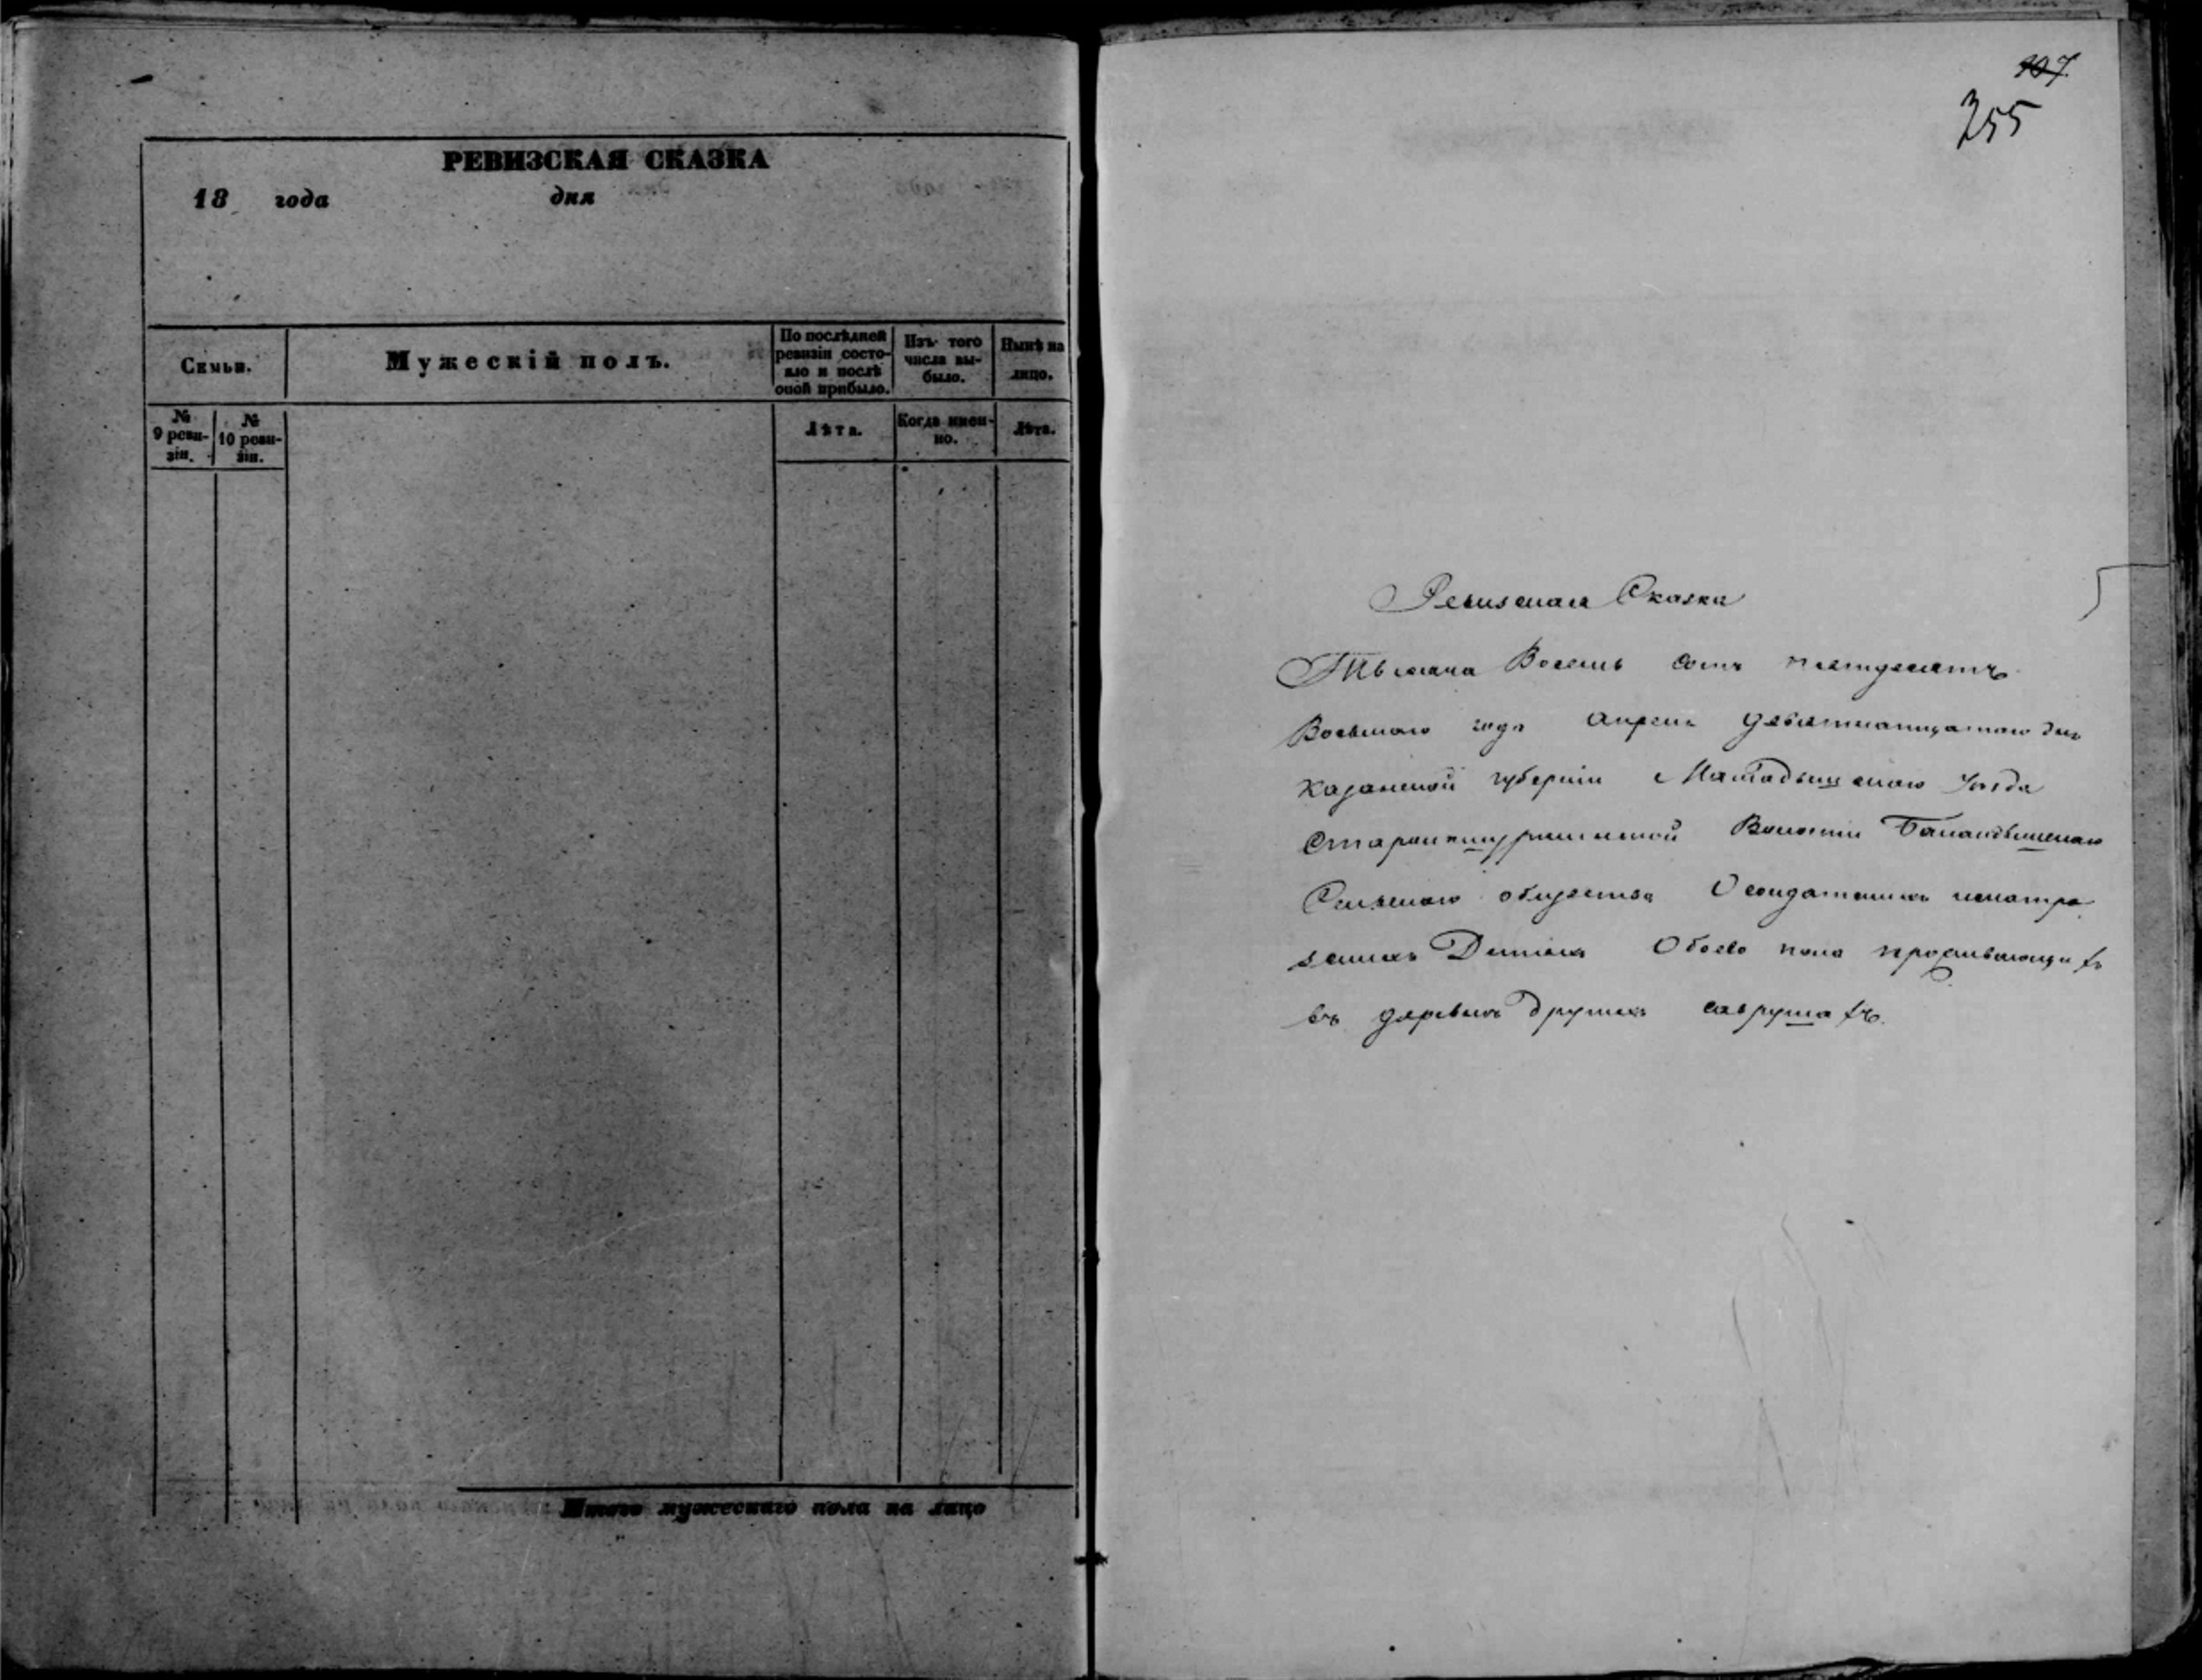 РЕВИЗСКАЯ СКАЗКА
18 года дня
Семьи.
Мужескій полъ.
По послѣдней ревизіи состояло и послѣ оной прибыло.
Изъ того числа выбыло.
Нынѣ на лицо.
№ 9 ревизіи.
№ 10 ревизіи.
Лѣта.
Когда именно.
Лѣта.
Итого мужескаго пола на лицо
107.
255
Ревизская Сказка
Тысяча Восемь сотъ пятдесятъ
Восьмаго года Апреля девятнатцатаго дня
Казанской губерніи Мамадышскаго Уѣзда
Старой Волости
Сельскаго общества О солдатскихъ
Детяхъ Обоего пола проживающихъ
въ деревне другихъ саврушахъ.